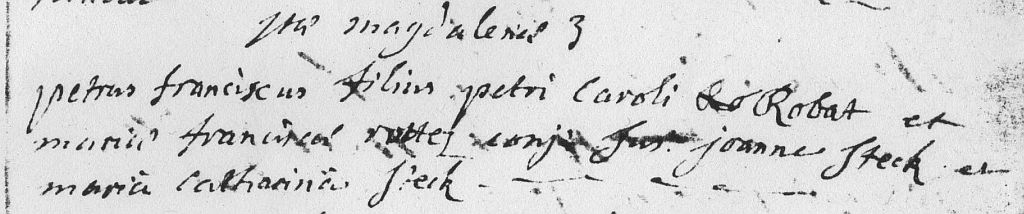 stæ magdalenæ 3
petrus franciscus filius petri Caroli Robat et
mariæ franciscæ rottej conju Sus. joanne steck et
maria catharina steck